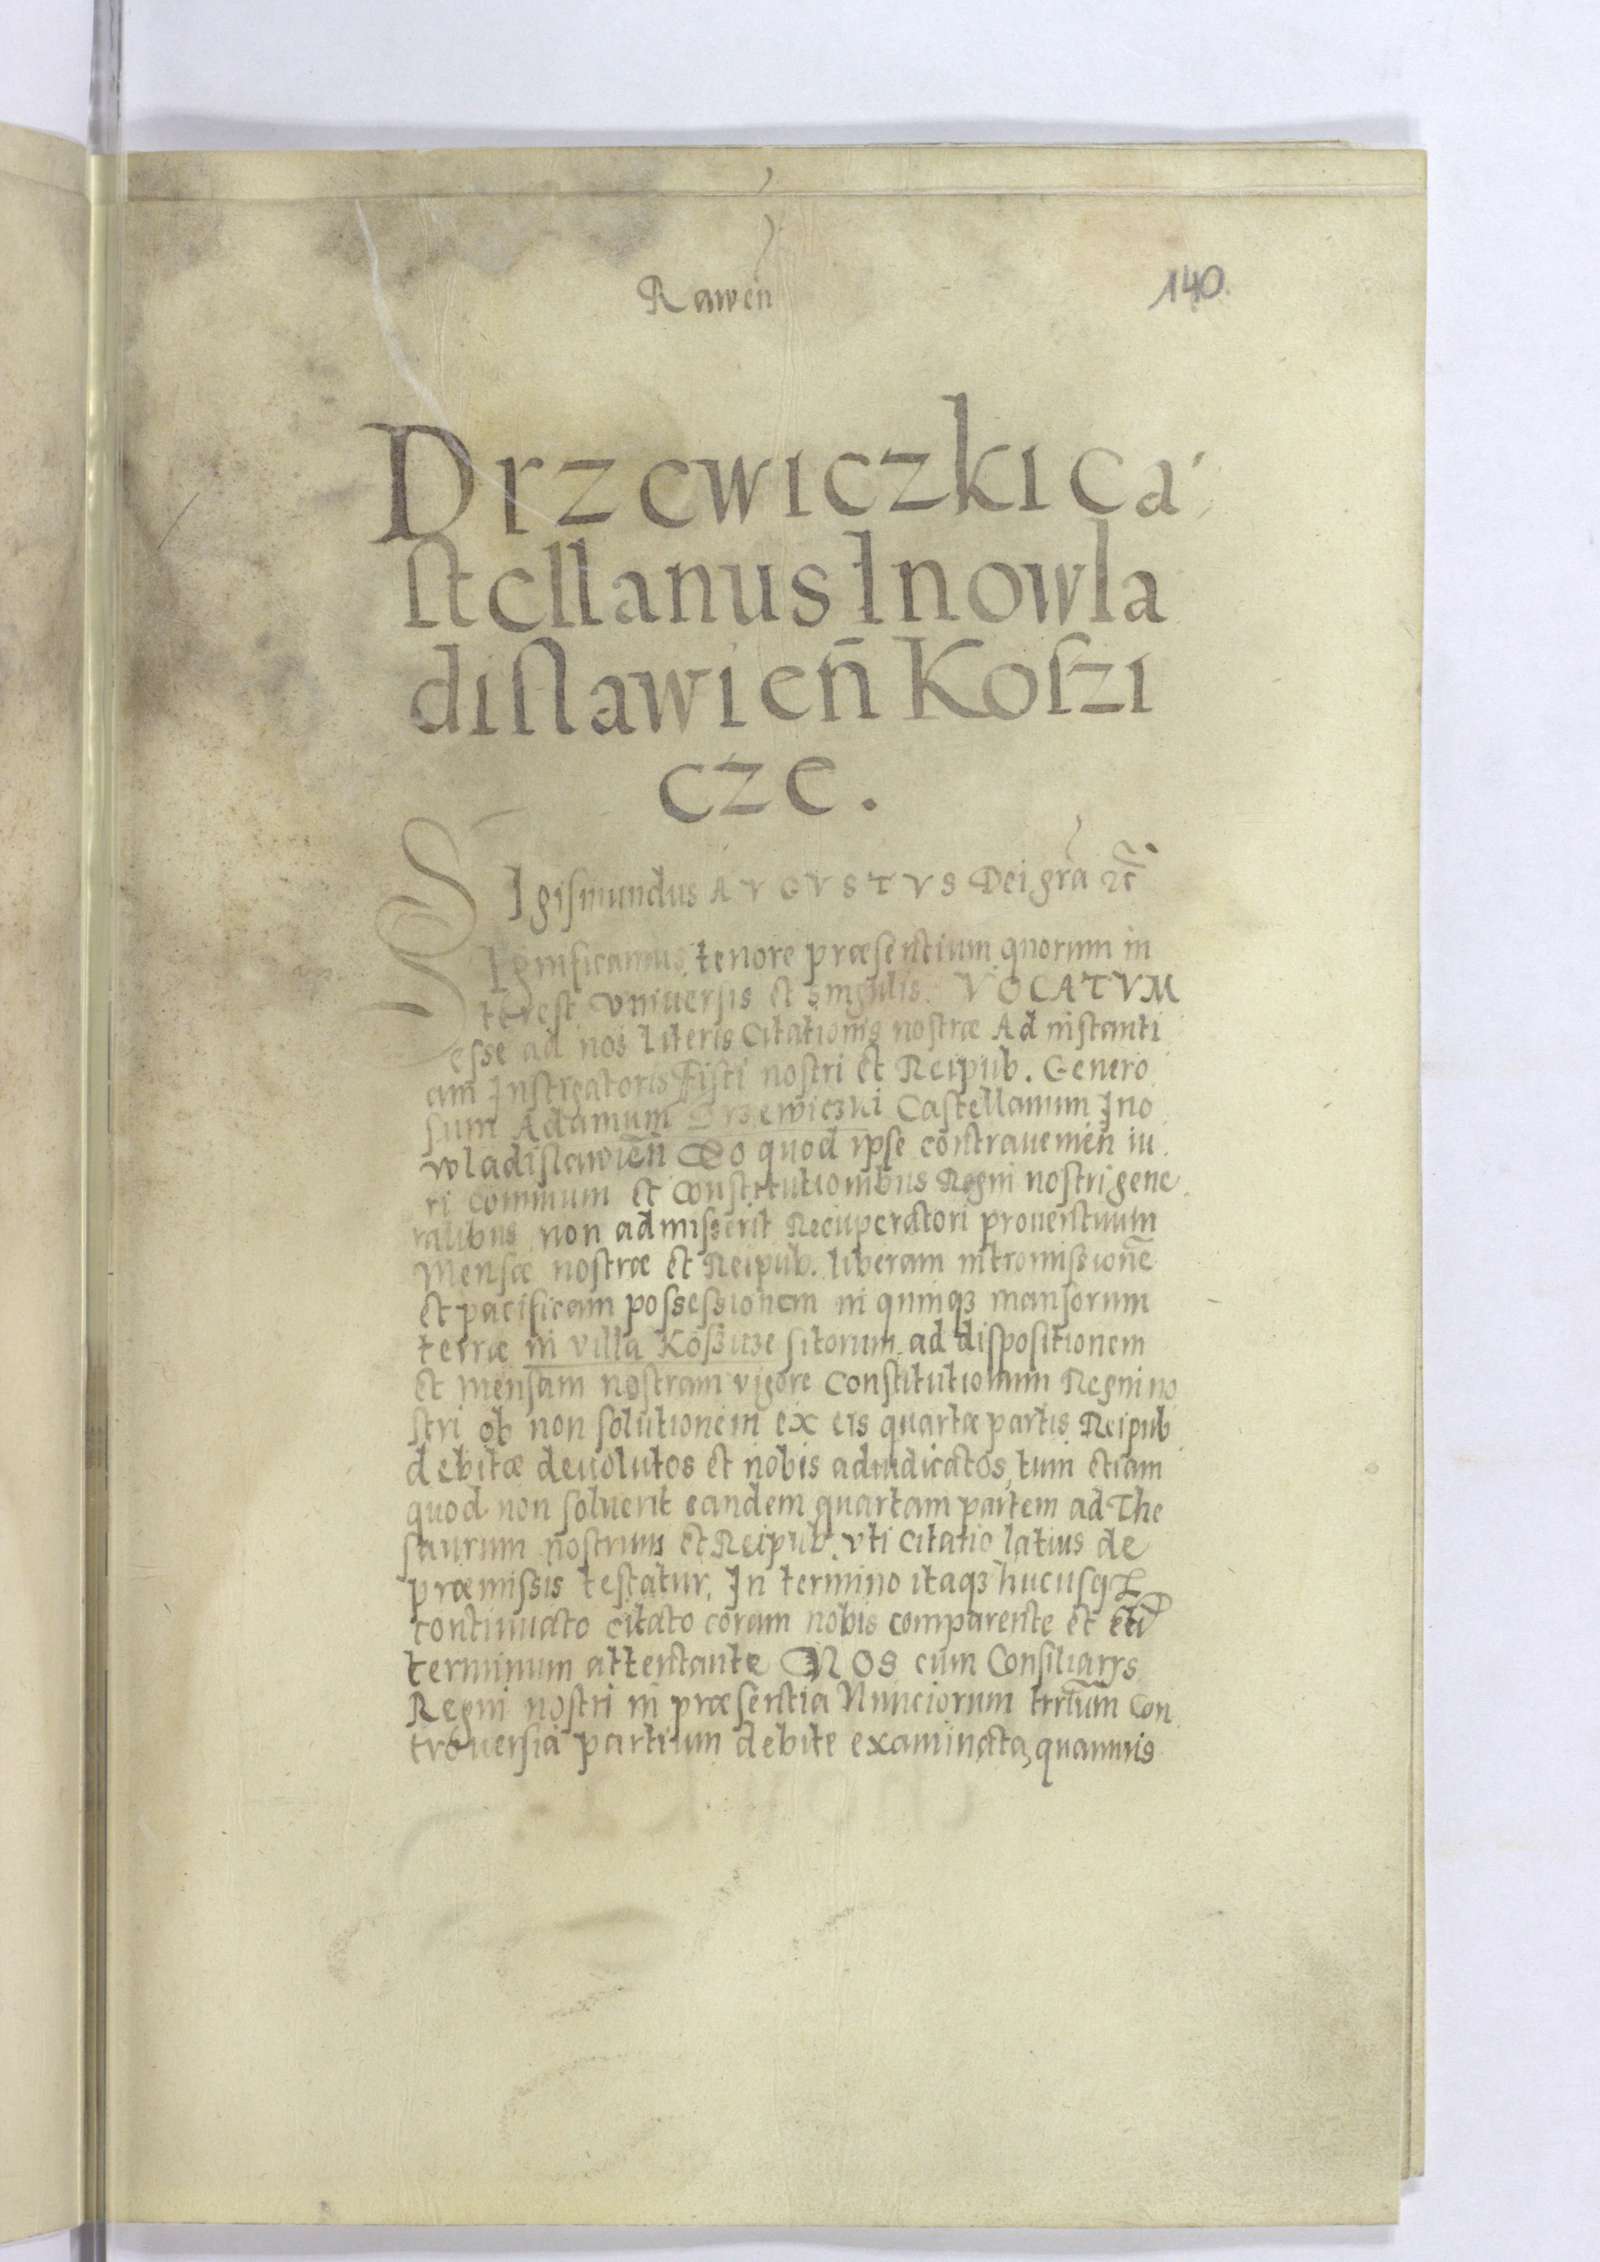 Raweñ
140.
Drzewiczki ca
stellanus Inowla
dislawień Koszi
cze.
SIgismundus AVGVSTVS Dei gr̃a &c̃
SIgnificamus tenore præsentium quorum in
terest vniuersis et singulis. VOCATVM
esse ad nos literis Citationis nostræ Ad instanti
am Instigatoris Fisci nostri et Reipub. Genero
sum Adamum Drzewiczki Castellanum Ino
wladislawieñ Eo quod ipse contraueniеñ iu
ri communi et Constitutionibus Regni nostri gene
ralibus non admisserit Recuperatori prouentuum
Mensæ nostræ et Reipub. liberam intromissionẽ
et pacificam possessionem in quinqꝫ mansorum
terræ in villa Koszicze sitorum ad dispositionem
et mensam nostram vigore Constitutionum Regni no
stri ob non solutionem ex eis quartæ partis Reipub
debitæ deuolutos et nobis adiudicatos, tum etiam
quod non soluerit eandem quartam partem ad The
saurum nostrum et Reipub. vti citatio latius de
præmissis testatur, In termino itaqꝫ hucusqꝫ
continuato citato coram nobis comparente et
terminum attentante NOS cum Consiliarijs
Regni nostri in præsentia Nunciorum trr̃um Con
trouersia partium debite examinata, quamuis